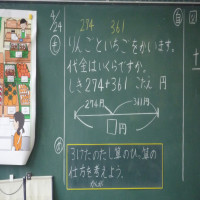 4/24
274 361
も
りんごといちごをかいます。
代金はいくらですか。
しき 274+361 こたえ 円
274円 361円
□円
め
3けたのたし算のひっ算の
仕方を考えよう。
かんが